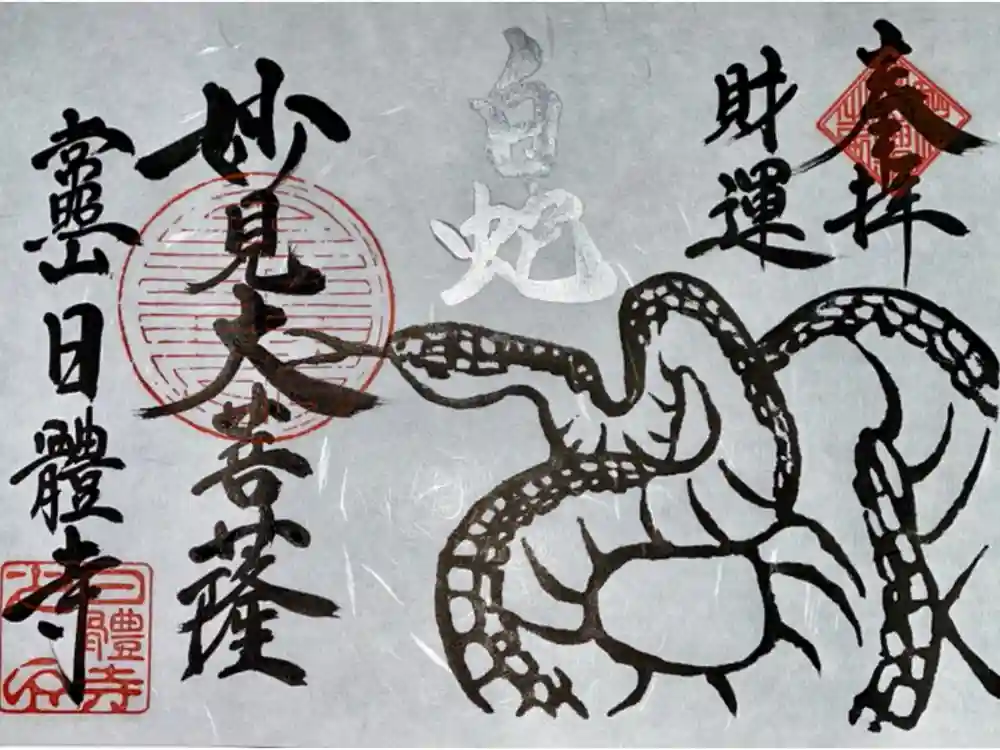 奉拝
財運
白蛇
妙見大菩薩
常照山日體寺
日體寺
之印